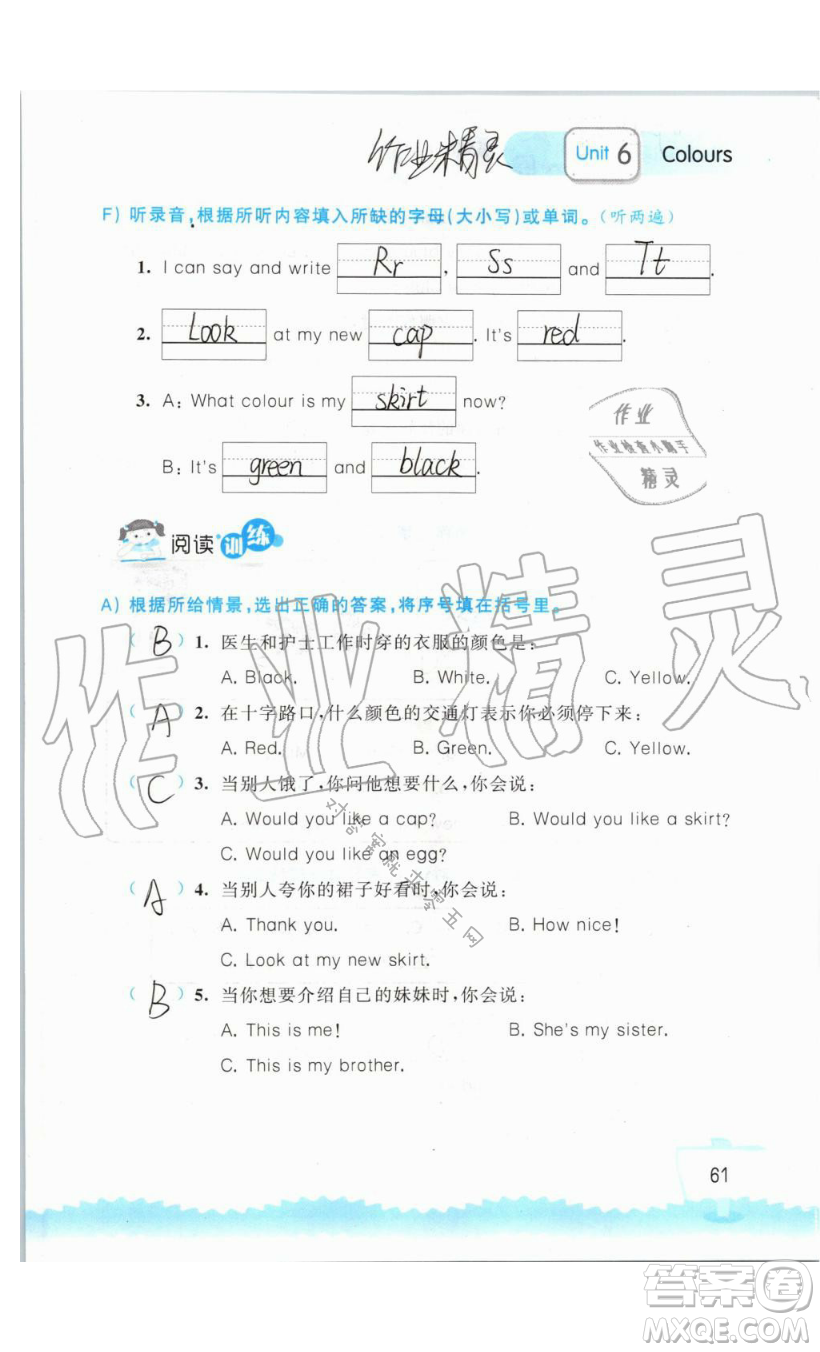 作业精灵 Unit 6 Colours
F) 听录音，根据所听内容填入所缺的字母(大小写)或单词。(听两遍)
1. I can say and write Rr, Ss and Tt.
2. Look at my new cap. It's red.
3. A: What colour is my skirt now?
B: It's green and black.
作业
作业检查小助手
精灵
阅读训练
A) 根据所给情景，选出正确的答案，将序号填在括号里。
( B ) 1. 医生和护士工作时穿的衣服的颜色是:
A. Black. B. White. C. Yellow.
( A ) 2. 在十字路口，什么颜色的交通灯表示你必须停下来:
A. Red. B. Green. C. Yellow.
( C ) 3. 当别人饿了，你问他想要什么，你会说:
A. Would you like a cap? B. Would you like a skirt?
C. Would you like an egg?
( A ) 4. 当别人夸你的裙子好看时，你会说:
A. Thank you. B. How nice!
C. Look at my new skirt.
( B ) 5. 当你想要介绍自己的妹妹时，你会说:
A. This is me! B. She's my sister.
C. This is my brother.
作业精灵
对答案就去零五网
61
答案圈
MXQE.COM